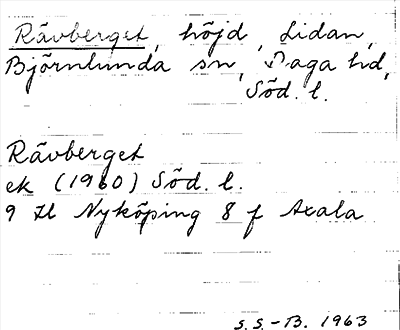 Rävberget, höjd, Lidan,
Björnlunda sn, Daga hd,
Söd. l.
Rävberget
ek (1960) Söd. l.
9 H Nyköping 8 f Axala
S.S.-B. 1963